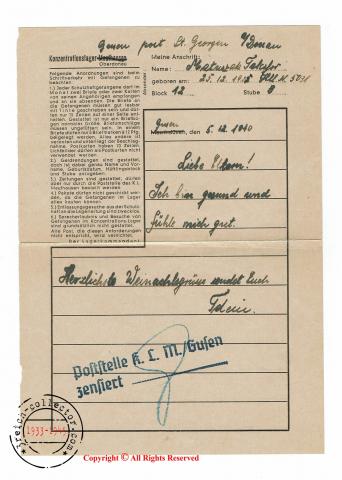 Gusen post St. Georgen a/Donau
Konzentrationslager Mauthausen
Oberdonau
Folgende Anordnungen sind beim
Schriftverkehr mit Gefangenen zu
beachten:
1.) Jeder Schutzhaftgefangene darf im
Monat zwei Briefe oder zwei Karten
von seinen Angehörigen empfangen
und an sie absenden. Die Briefe an
die Gefangenen müssen gut lesbar
mit Tinte geschrieben sein und dürfen
nur 15 Zeilen auf einer Seite ent-
halten. Gestattet ist nur ein Briefbogen
normaler Größe. Briefumschläge
müssen ungefüttert sein. In einem
Briefe dürfen nur 5 Briefmarken à 12 Pfg.
beigelegt werden. Alles andere ist
verboten und unterliegt der Beschlag-
nahme. Postkarten haben 10 Zeilen.
Lichtbilder dürfen als Postkarten nicht
verwendet werden.
2.) Geldsendungen sind gestattet,
doch ist dabei genau Name und Vor-
name, Geburtsdatum, Häftlingsblock
und Stube anzugeben.
3.) Zeitungen sind gestattet, dürfen
aber nur durch die Poststelle des K. L.
Mauthausen bestellt werden.
4.) Pakete dürfen nicht geschickt wer-
den, da die Gefangenen im Lager
alles kaufen können.
5.) Entlassungsgesuche aus der Schutz-
haft an die Lagerleitung sind zwecklos.
6.) Sprecherlaubnis und Besuche von
Gefangenen im Konzentrations-Lager
sind grundsätzlich nicht gestattet.
Alle Post, die diesen Anforderungen
nicht entspricht, wird vernichtet.
Der Lagerkommandant
Absender
Meine Anschrift:
Name:
geboren am: 25.12.
Block 12 Stube
Gusen
Mauthausen, den 5.12.1940
Liebe Eltern!
Ich bin gesund und
fühle mich gut.
Herzlichste Weinachtsgrüsse sendet Euch
Poststelle K. L. M./Gusen
zensiert
3reich-collector.com
1933-1945
Copyright © All Rights Reserved